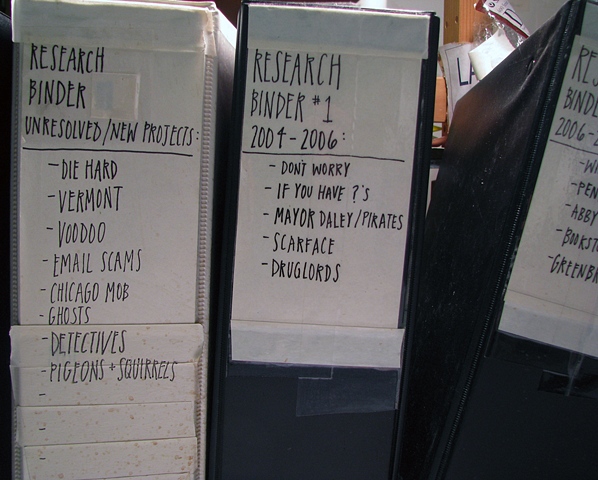 RESEARCH
BINDER
UNRESOLVED/NEW PROJECTS:
- DIE HARD
- VERMONT
- VOODOO
- EMAIL SCAMS
- CHICAGO MOB
- GHOSTS
- DETECTIVES
- PIGEONS + SQUIRRELS
-
-
-
RESEARCH
BINDER #1
2004-2006:
- DON'T WORRY
- IF YOU HAVE ?'S
- MAYOR DALEY/PIRATES
- SCARFACE
- DRUGLORDS
RES
BINDE
2006-2
- W
- PEN
- ABBY
- BOOKST
- GREENBR
LA